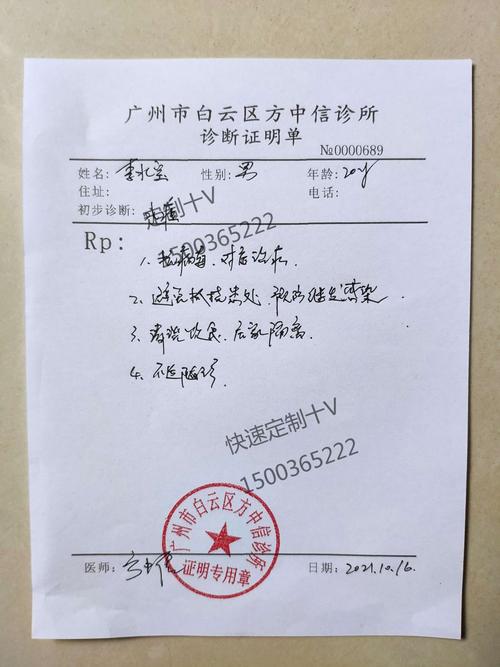 广州市白云区方中信诊所
诊断证明单
№0000689
姓名: 李 性别: 男 年龄: 20y
住址: 电话:
初步诊断:
快速定制十V
1500365222
Rp:
1. 抗病毒、对症治疗.
2. 避免抓挠患处, 预防继发感染.
3. 清淡饮食、居家隔离
4. 不适随诊.
快速定制十V
1500365222
广州市白云区方中信诊所
证明专用章
医师: 日期: 2021.10.16.